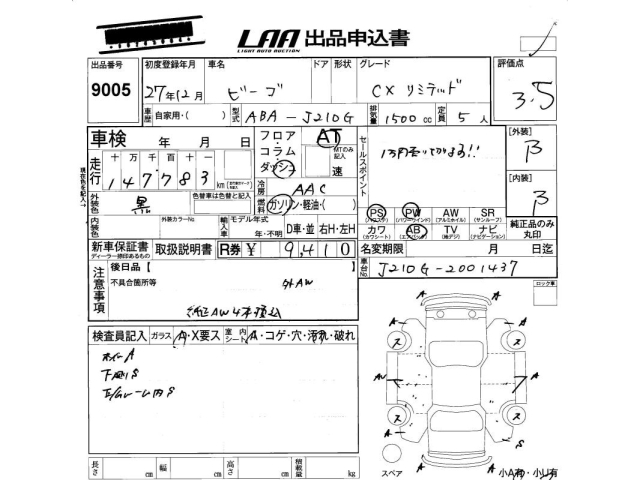 LAA 出品申込書
LIGHT AUTO AUCTION
出品番号 初度登録年月 車名 ドア 形状 グレード 評価点
9005 27年12月 ビーゴ CX リミテッド 3.5
車歴 自家用・( ) 型式 ABA-J210G 排気量 1500cc 定員 5人
車検 年 月 日 フロア・コラム・ダッシュ AT MTのみ記入 速
セールスポイント
[外装] B
[内装] B
走行 十万千百十一
147783 km
現在色を記入→
冷房 AAC
外装色 黒 色替車は色替と記入
燃料 ガソリン・軽油・( )
内装色 外装カラーNo. 輸入車 モデル年式 年・不明 D車・並 右H・左H
PS (パワステ) PW (パワーウインド) AW (アルミホイル) SR (サンルーフ)
カワ (カワシート) AB (エアバック) TV (純デジ) ナビ (ナビゲーション)
純正品のみ丸印
新車保証書 取扱説明書 R券 ¥ 9,410
ディーラー捺印あるもの
名変期限 月 日迄
車台No. J210G-2001437
注意事項 後日品【
不具合箇所等 外AW
純正AW4本積込
ロック車
検査員記入 ガラス A・X要ス 室内シート A・コゲ・穴・汚れ・破れ
下廻りS
A A
ス ス
AW A
ス ス
A A
S
A
長さ cm 幅 cm 高さ cm 積載量 kg
スペア 小A有・小U有